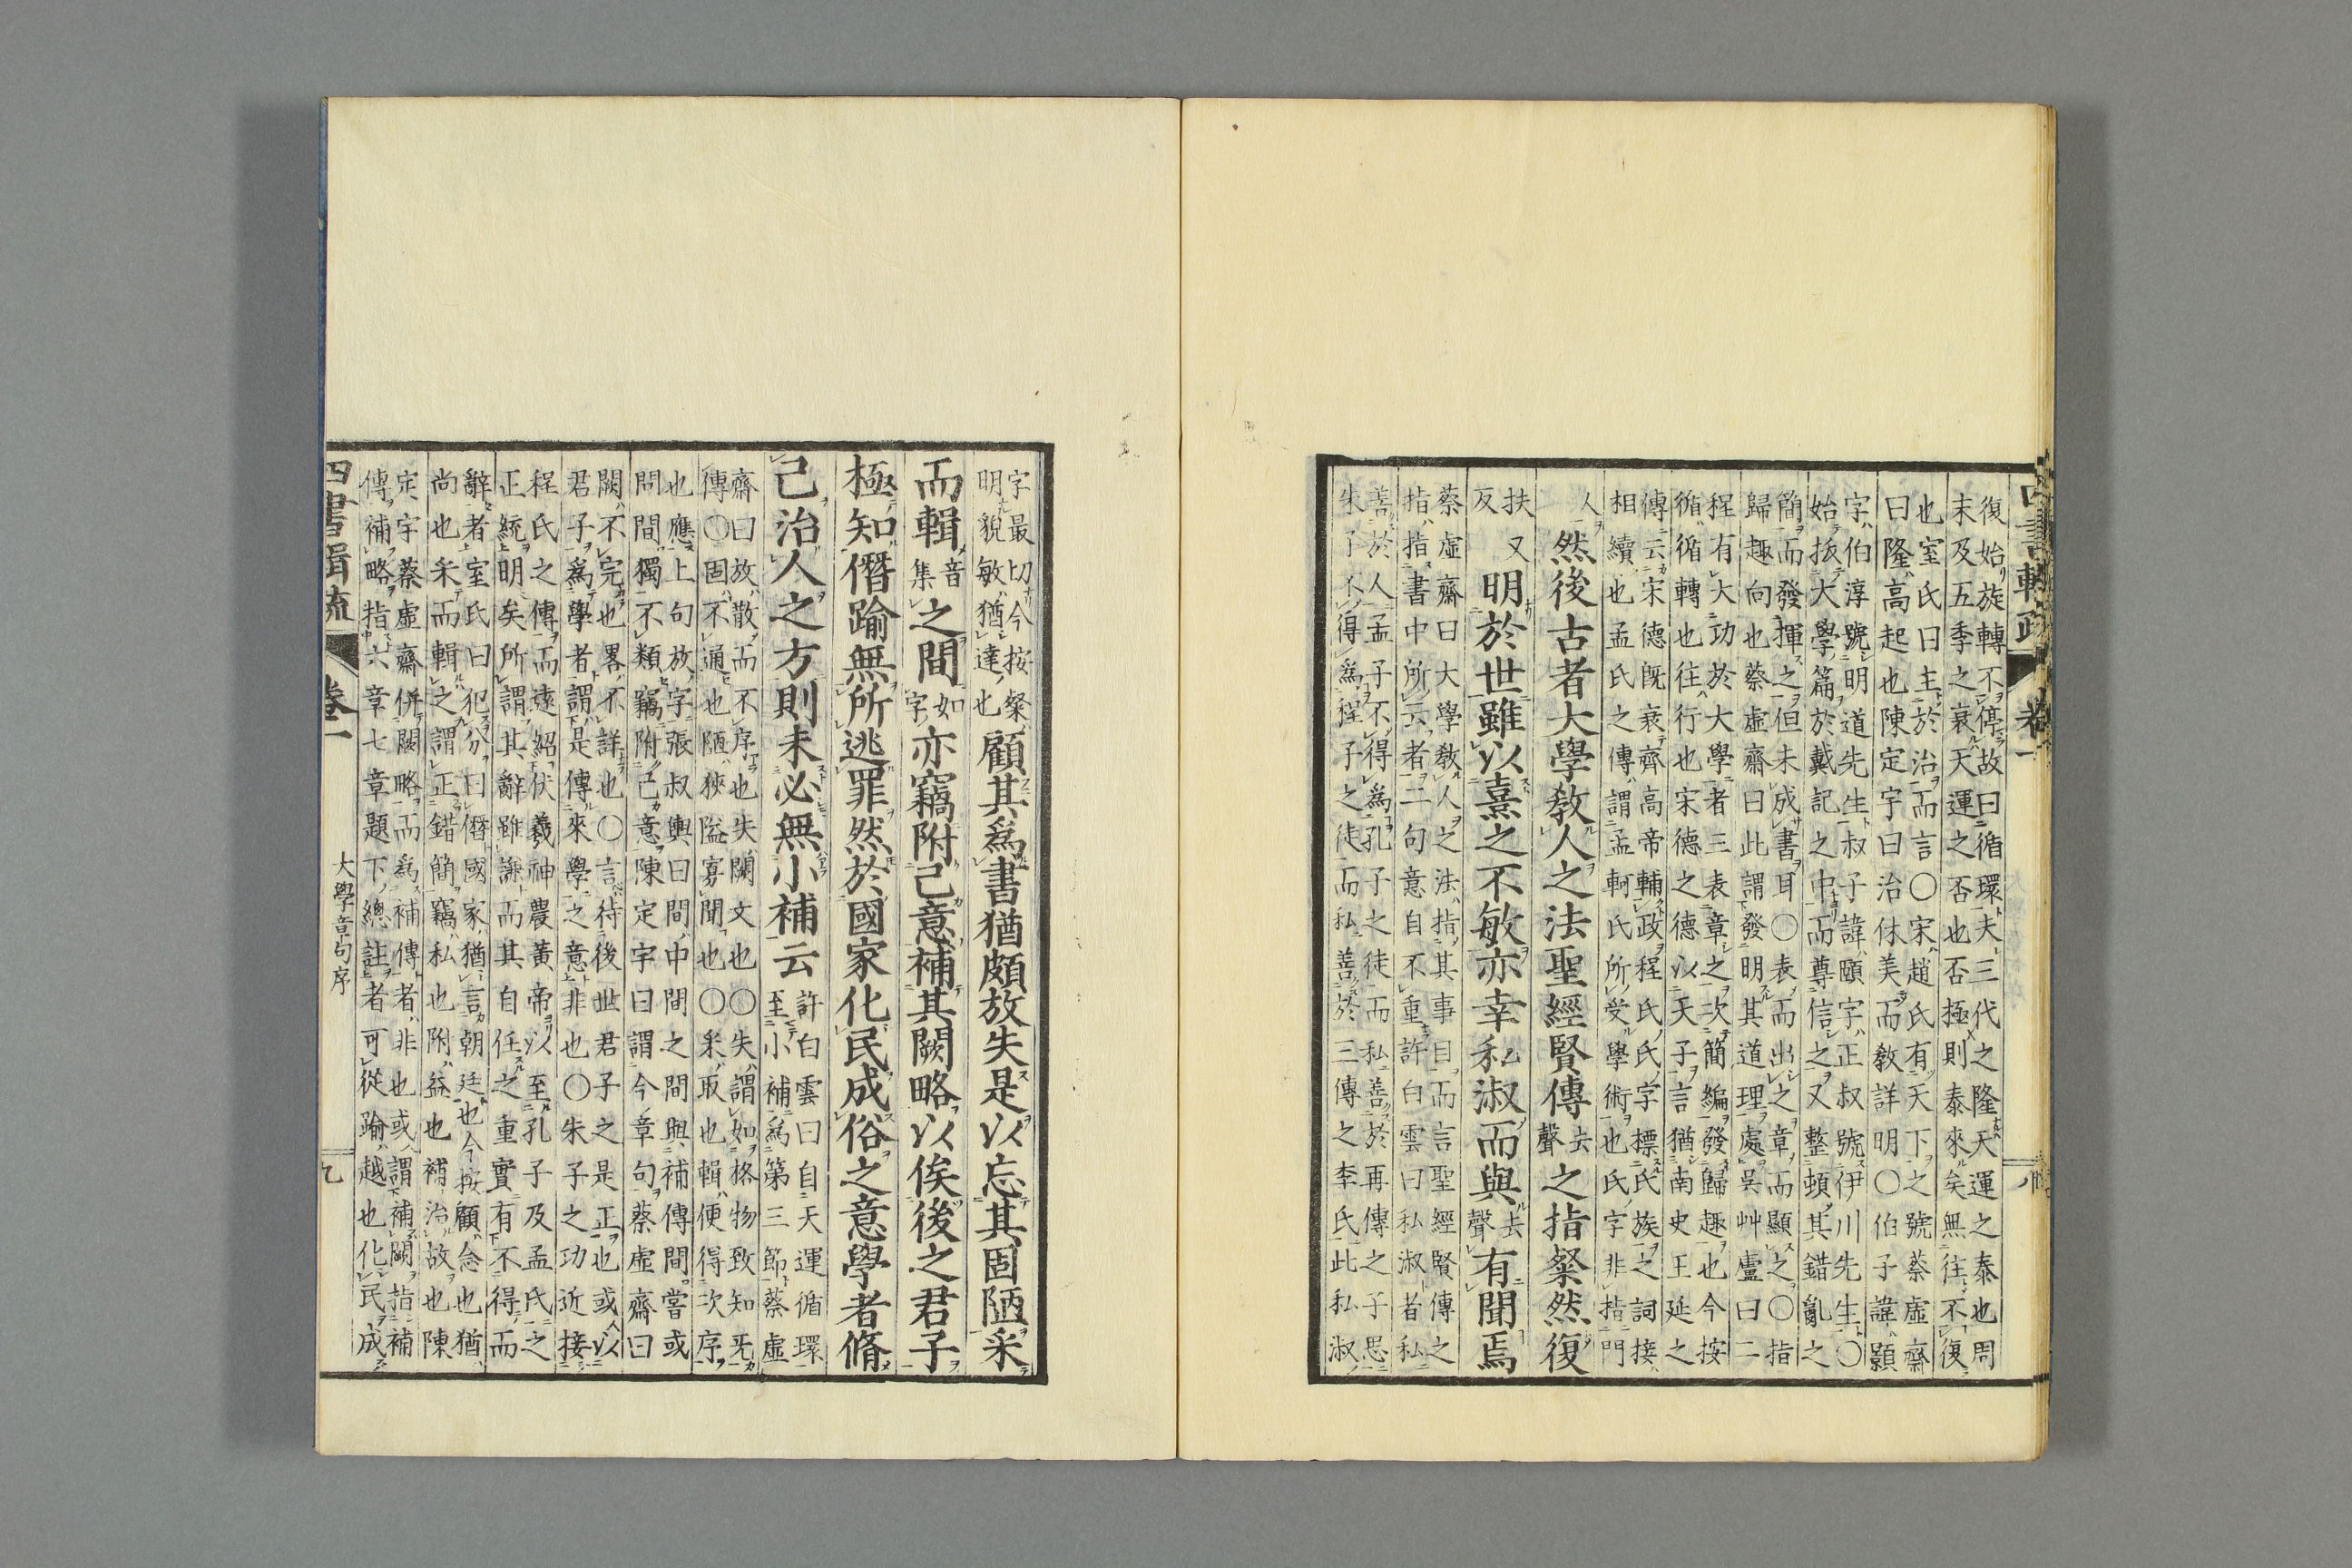 復始旋轉不停故曰循環夫三代之隆天運之泰也周
末及五季之衰天運之否也否極則泰來矣無往不復
也室氏曰主於治而言〇宋趙氏有天下之號蔡虛齋
曰隆高起也陳定宇曰治休美而敎詳明〇伯子諱顥
字伯淳號明道先生叔子諱頤字正叔號伊川先生〇
始扳大學篇於戴記之中而尊信之又整頓其錯亂之
簡而發揮之但未成書耳〇表而出之章而顯之〇指
歸趣向也蔡虛齋曰此謂發明其道理處吳艸盧曰二
程有大功於大學者三表章之次簡編發歸趣也今按
循循轉也往行也宋德之德以天子言猶南史王延之
傳云宋德旣衰齊高帝輔政程氏氏字標氏族之詞接
相續也孟氏之傳謂孟軻氏所受學術也氏字非指門
人
然後古者大學敎人之法聖經賢傳去聲之指粲然復
扶又反
明於世雖以熹之不敏亦幸私淑而與去聲有聞焉
蔡虛齋曰大學敎人之法指其事目而言聖經賢傳之
指指書中所云者二句意自不重許白雲曰私淑者私
善於人孟子不得爲孔子之徒而私善於再傳之子思
朱子不得爲程子之徒而私善於三傳之李氏此私淑
四書輯疏 卷一
字最切今按粲
明貌敏猶達也
顧其爲書猶頗放失是以忘其固陋采
而輯音集之間如字亦竊附己意補其闕略以俟後之君子
極知僭踰無所逃罪然於國家化民成俗之意學者脩
己治人之方則未必無小補云
許白雲曰自天運循環
至小補爲第三節蔡虛
齋曰放散而不序也失闕文也〇失謂如格物致知旡
傳〇固不通也陋狹隘寡聞也〇采取也輯便得次序
也應上句放字張叔輿曰間中間之間與補傳間嘗或
問間獨不類竊附己意陳定宇曰謂今章句蔡虛齋曰
闕不完也畧不詳也〇言待後世君子之是正也或以
君子爲學者謂是傳來學之意非也〇朱子之功近接
程氏之傳而遠紹伏羲神農黃帝以至孔子及孟氏之
正統明矣所謂其辭雖謙而其自任之重實有不得而
辭者室氏曰犯分曰僭國家猶言朝廷也今按顧念也猶
尚也采而輯之謂正錯簡竊私也附益也補治故也陳
定宇蔡虛齋併闕略而爲補傳者非也或謂補闕指補
傳補略指六章七章題下總註者可從踰越也化民成
四書輯疏 卷一 大學章句序 九